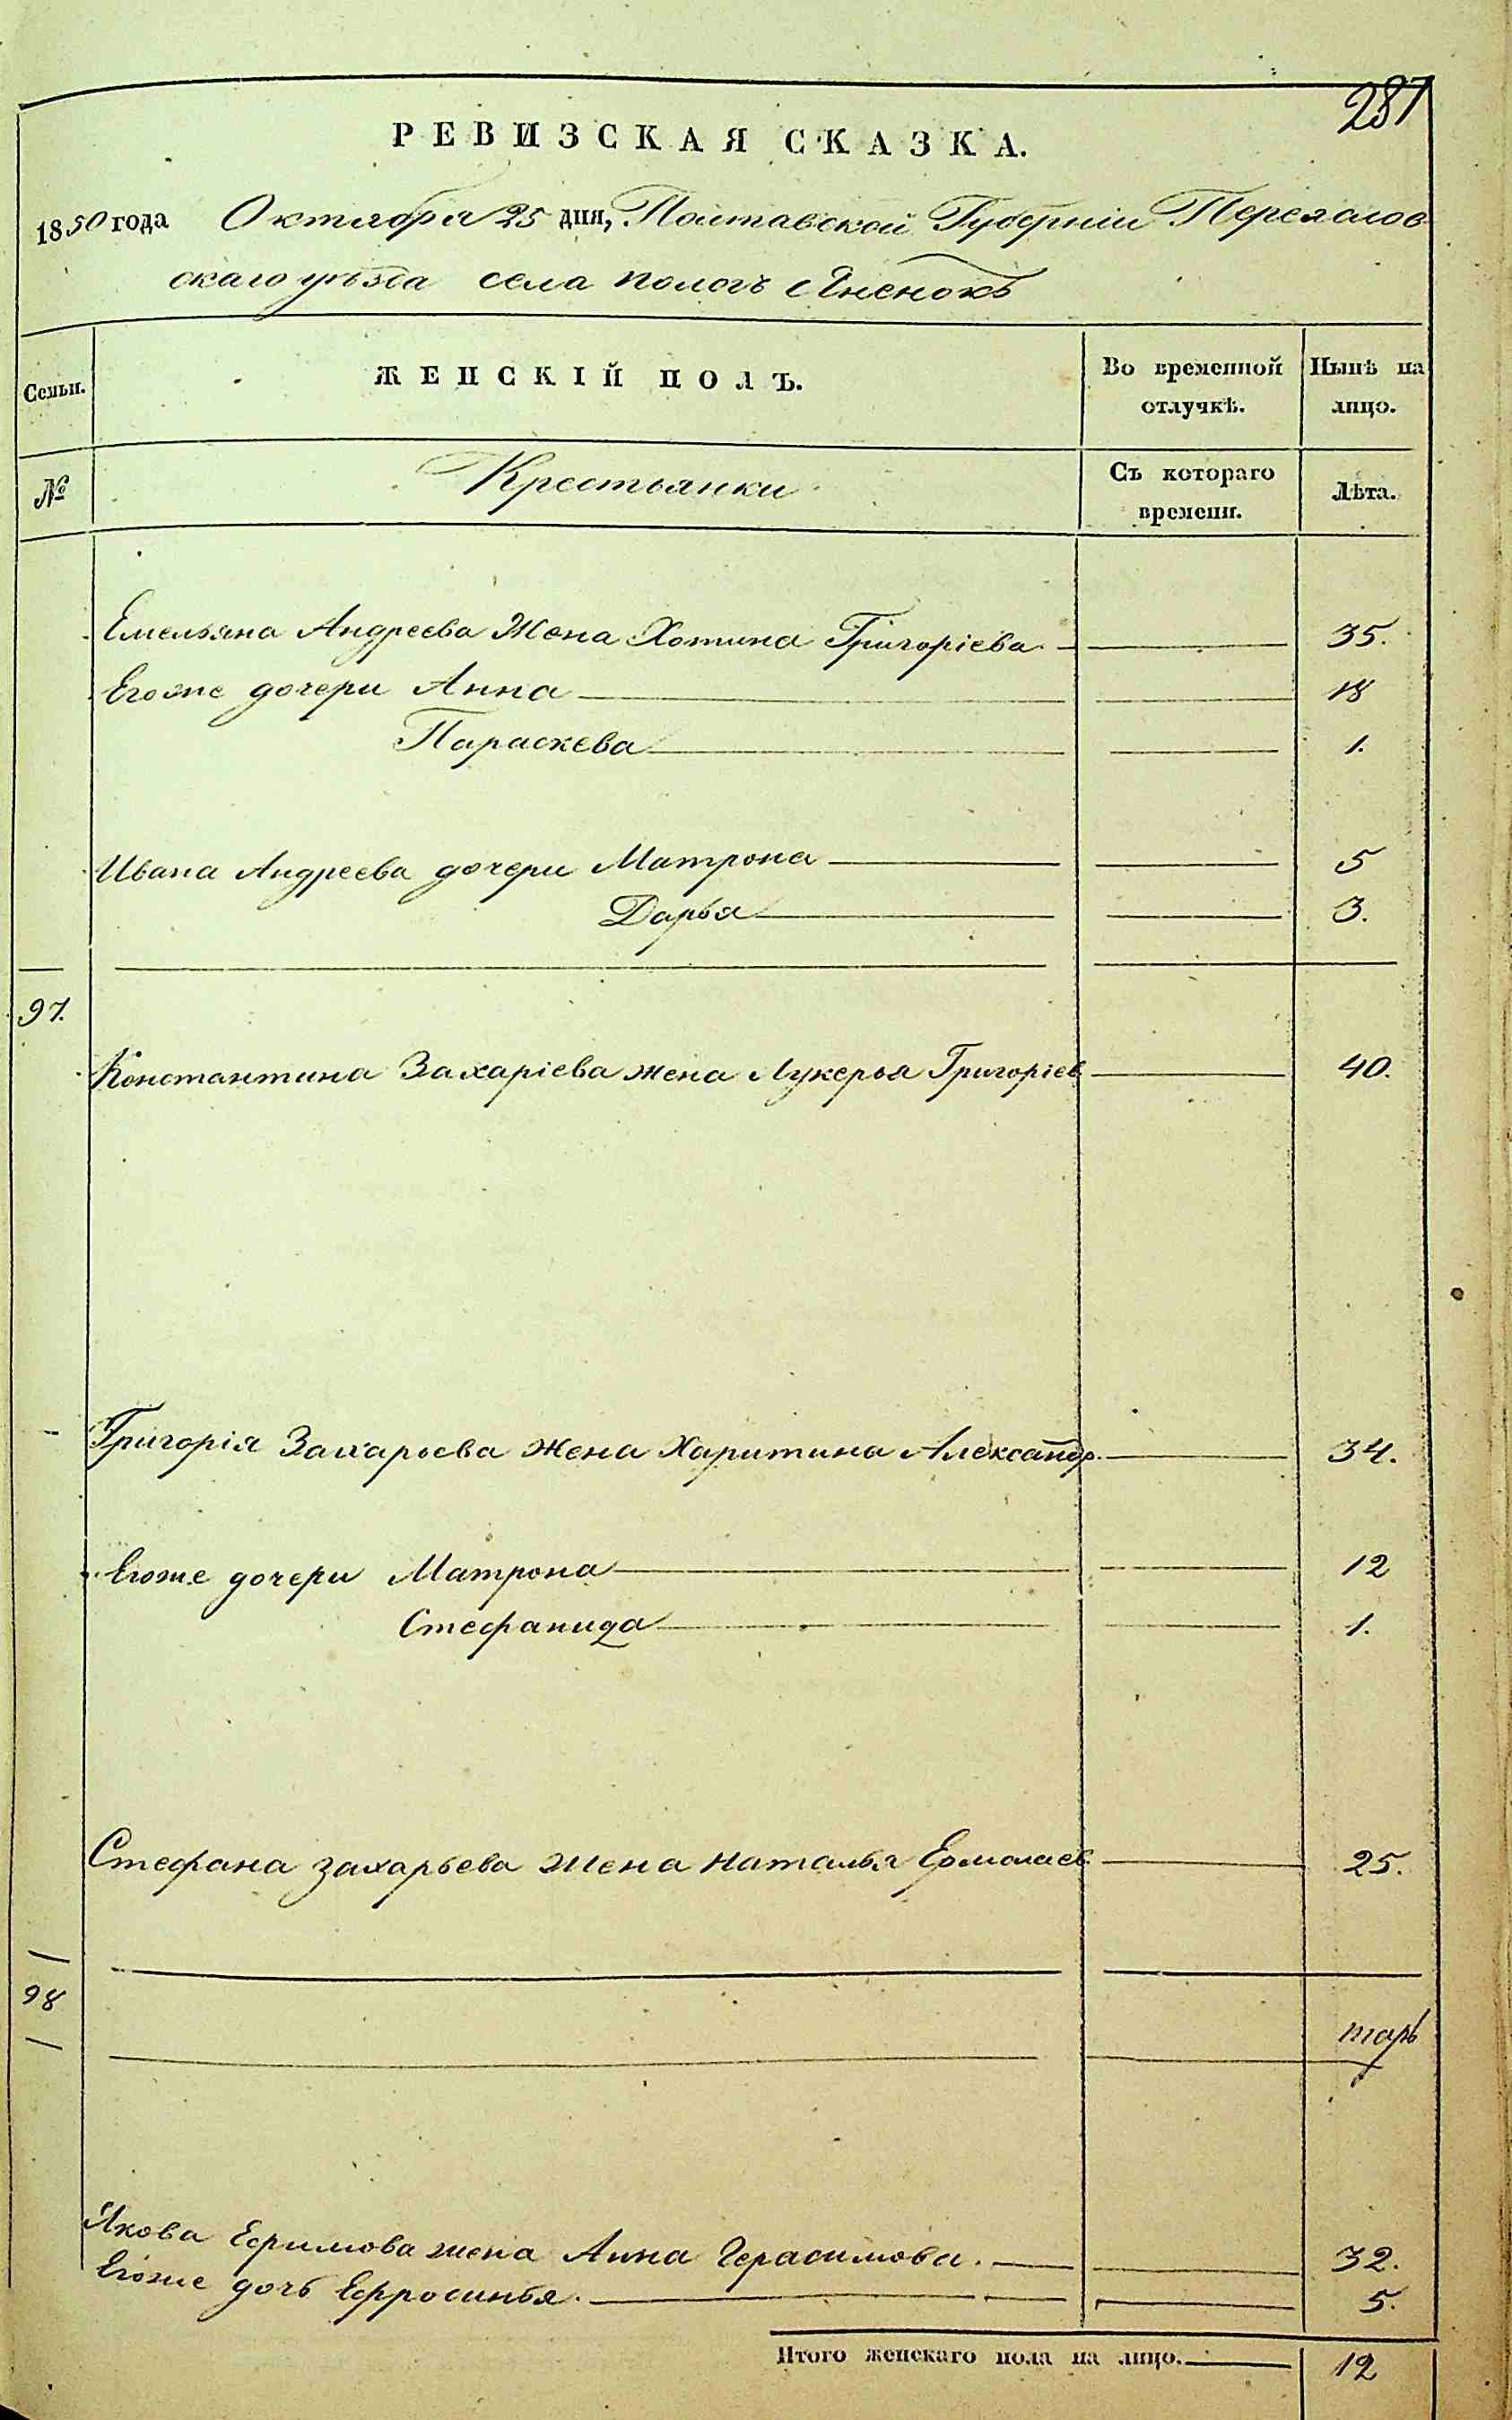 287
РЕВИЗСКАЯ СКАЗКА.
1850 года Октября 25 дня, Полтавской Губерніи Переяслов
скаго уѣзда села пологъ Яненокъ
Семьи.
ЖЕНСКІЙ ПОЛЪ.
Во временной отлучкѣ.
Нынѣ на лицо.
№
Крестьянки
Съ котораго времени.
Лѣта.
Емельяна Андреева Жена Хотина Григоріева 35.
Егоже дочери Анна 18
Параскева 1.
Ивана Андреева дочери Матрона 5
Дарья 3.
97.
Константина Захаріева жена Лукерья Григоріев 40.
Григорія Захарьева Жена Харитина Александр. 34.
Егоже дочери Матрона 12
Стефанида 1.
Стефана Захарьева жена Наталья Ермолаев 25.
98
Якова Ефимова жена Анна Герасимова. 32.
Егоже дочь Ефросинья. 5.
Итого женскаго пола на лицо. 12